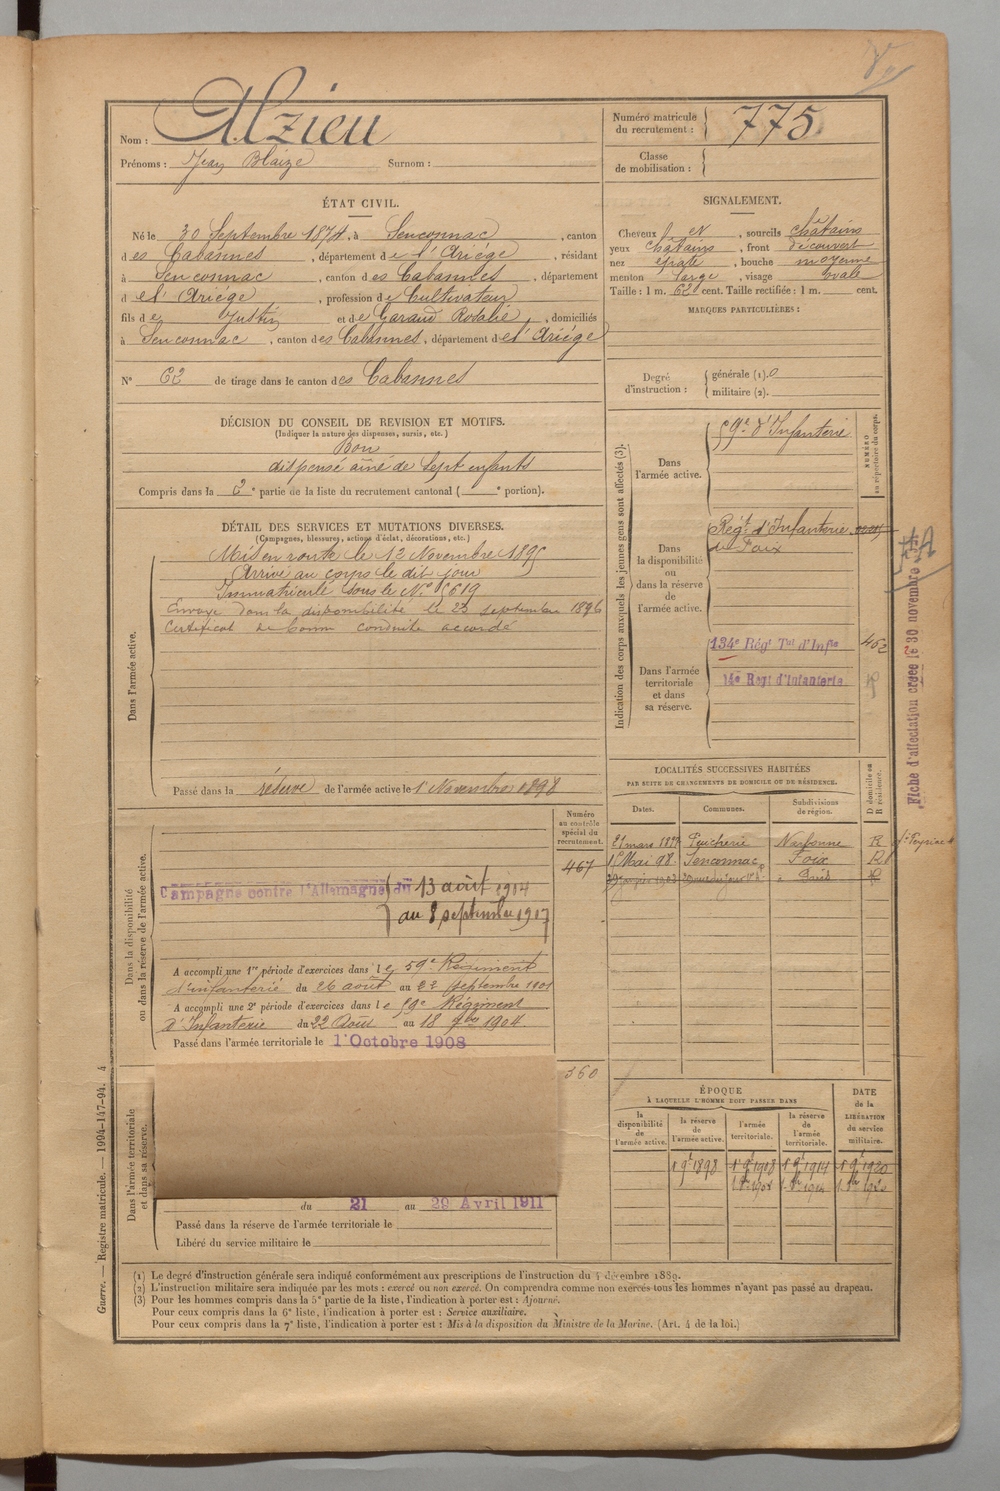 Nom : Alzieu
Prénoms : Jean Blaize Surnom :
Numéro matricule du recrutement : 775
Classe de mobilisation :
ÉTAT CIVIL.
Né le 30 Septembre 1874, à Senconnac, canton
des Cabannes, département de l'Ariége, résidant
à Senconnac, canton des Cabannes, département
d el' Ariége, profession de Cultivateur
fils de Justin et de Garaud Rosalie, domiciliés
à Senconnac, canton des Cabannes, département de l'Ariége
N° 62 de tirage dans le canton des Cabannes
SIGNALEMENT.
Cheveux et, sourcils châtains
yeux châtains, front découvert
nez épaté, bouche moyenne
menton large, visage ovale
Taille : 1 m. 62 cent. Taille rectifiée : 1 m. cent.
MARQUES PARTICULIÈRES :
Degré d'instruction : générale (1). 0
militaire (2).
DÉCISION DU CONSEIL DE REVISION ET MOTIFS.
(Indiquer la nature des dispenses, sursis, etc.)
Bon
dispensé aîné de sept enfants
Compris dans la 2e partie de la liste du recrutement cantonal ( e portion).
DÉTAIL DES SERVICES ET MUTATIONS DIVERSES.
(Campagnes, blessures, actions d'éclat, décorations, etc.)
Dans l'armée active.
Mis en route le 12 Novembre 1895
Arrivé au corps le dit jour
Immatriculé sous le N° 5619
Envoyé dans la disponibilité le 22 septembre 1896
Certificat de bonne conduite accordé
Passé dans la réserve de l'armée active le 1er Novembre 1898
Dans la disponibilité
ou dans la réserve de l'armée active.
Numéro
au contrôle
spécial du
recrutement.
467
Campagne contre l'Allemagne du 13 août 1914
au 8 septembre 1917
A accompli une 1re période d'exercices dans le 59e Régiment
d'infanterie du 26 août au 22 septembre 1901
A accompli une 2e période d'exercices dans le 59e Régiment
d'Infanterie du 22 Août au 18 7bre 1904
Passé dans l'armée territoriale le 1er Octobre 1908
360
Dans l'armée territoriale
et dans sa réserve.
du 21 au 29 Avril 1911
Passé dans la réserve de l'armée territoriale le
Libéré du service militaire le
Indication des corps auxquels les jeunes gens sont affectés (3).
NUMÉRO
au répertoire du corps.
Dans
l'armée active.
59e d'Infanterie
Dans
la disponibilité
ou
dans la réserve
de
l'armée active.
Régt d'Infanterie
de Foix
Dans l'armée
territoriale
et dans
sa réserve.
134e Régt Tal d'Infie
452
14e Regt d'Infanterie
Fiche d'affectation créée le 30 novembre
LOCALITÉS SUCCESSIVES HABITÉES
PAR SUITE DE CHANGEMENTS DE DOMICILE OU DE RÉSIDENCE.
Dates. Communes. Subdivisions de région. D domicile ou R résidence.
21 mars 1897 Narbonne R
1er Mai 98 Senconnac Foix D
Paris R
ÉPOQUE
À LAQUELLE L'HOMME DOIT PASSER DANS
la disponibilité de l'armée active. la réserve de l'armée active. l'armée territoriale. la réserve de l'armée territoriale. DATE de la LIBÉRATION du service militaire.
1 9e 1898 1er 9e 1908 1er 9e 1914 1er 9e 1920
(1) Le degré d'instruction générale sera indiqué conformément aux prescriptions de l'instruction du 4 décembre 1889.
(2) L'instruction militaire sera indiquée par les mots : exercé ou non exercé. On comprendra comme non exercés tous les hommes n'ayant pas passé au drapeau.
(3) Pour les hommes compris dans la 5e partie de la liste, l'indication à porter est : Ajourné.
Pour ceux compris dans la 6e liste, l'indication à porter est : Service auxiliaire.
Pour ceux compris dans la 7e liste, l'indication à porter est : Mis à la disposition du Ministre de la Marine. (Art. 4 de la loi.)
Guerre. — Registre matricule. — 1994-147-94. 4